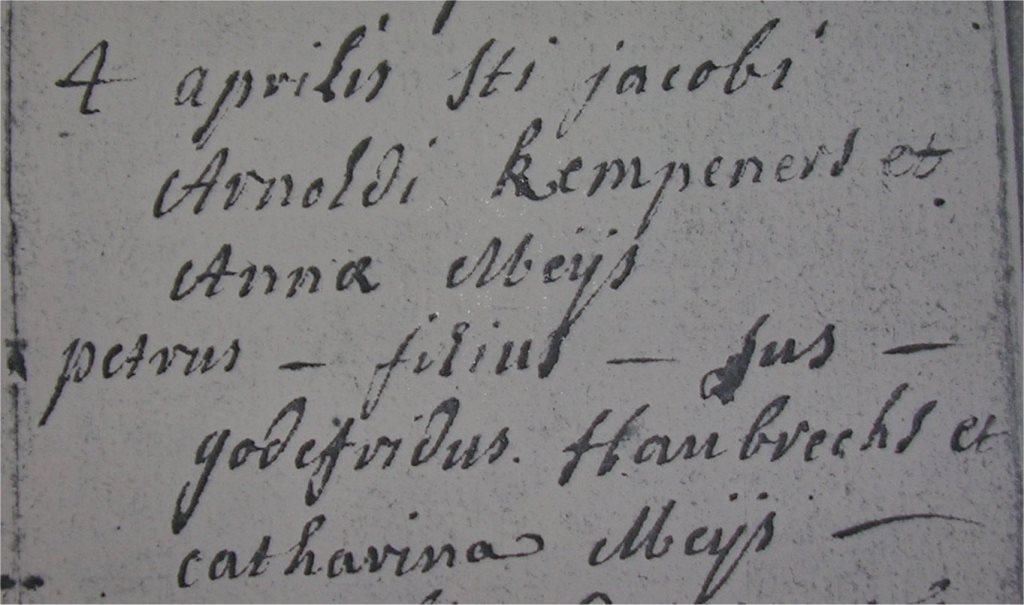 4 aprilis Sti jacobi
Arnoldi Kempeners et
Annæ Meijs
petrus – filius – sus –
godefridus. Haubrechs et
catharina Meijs –